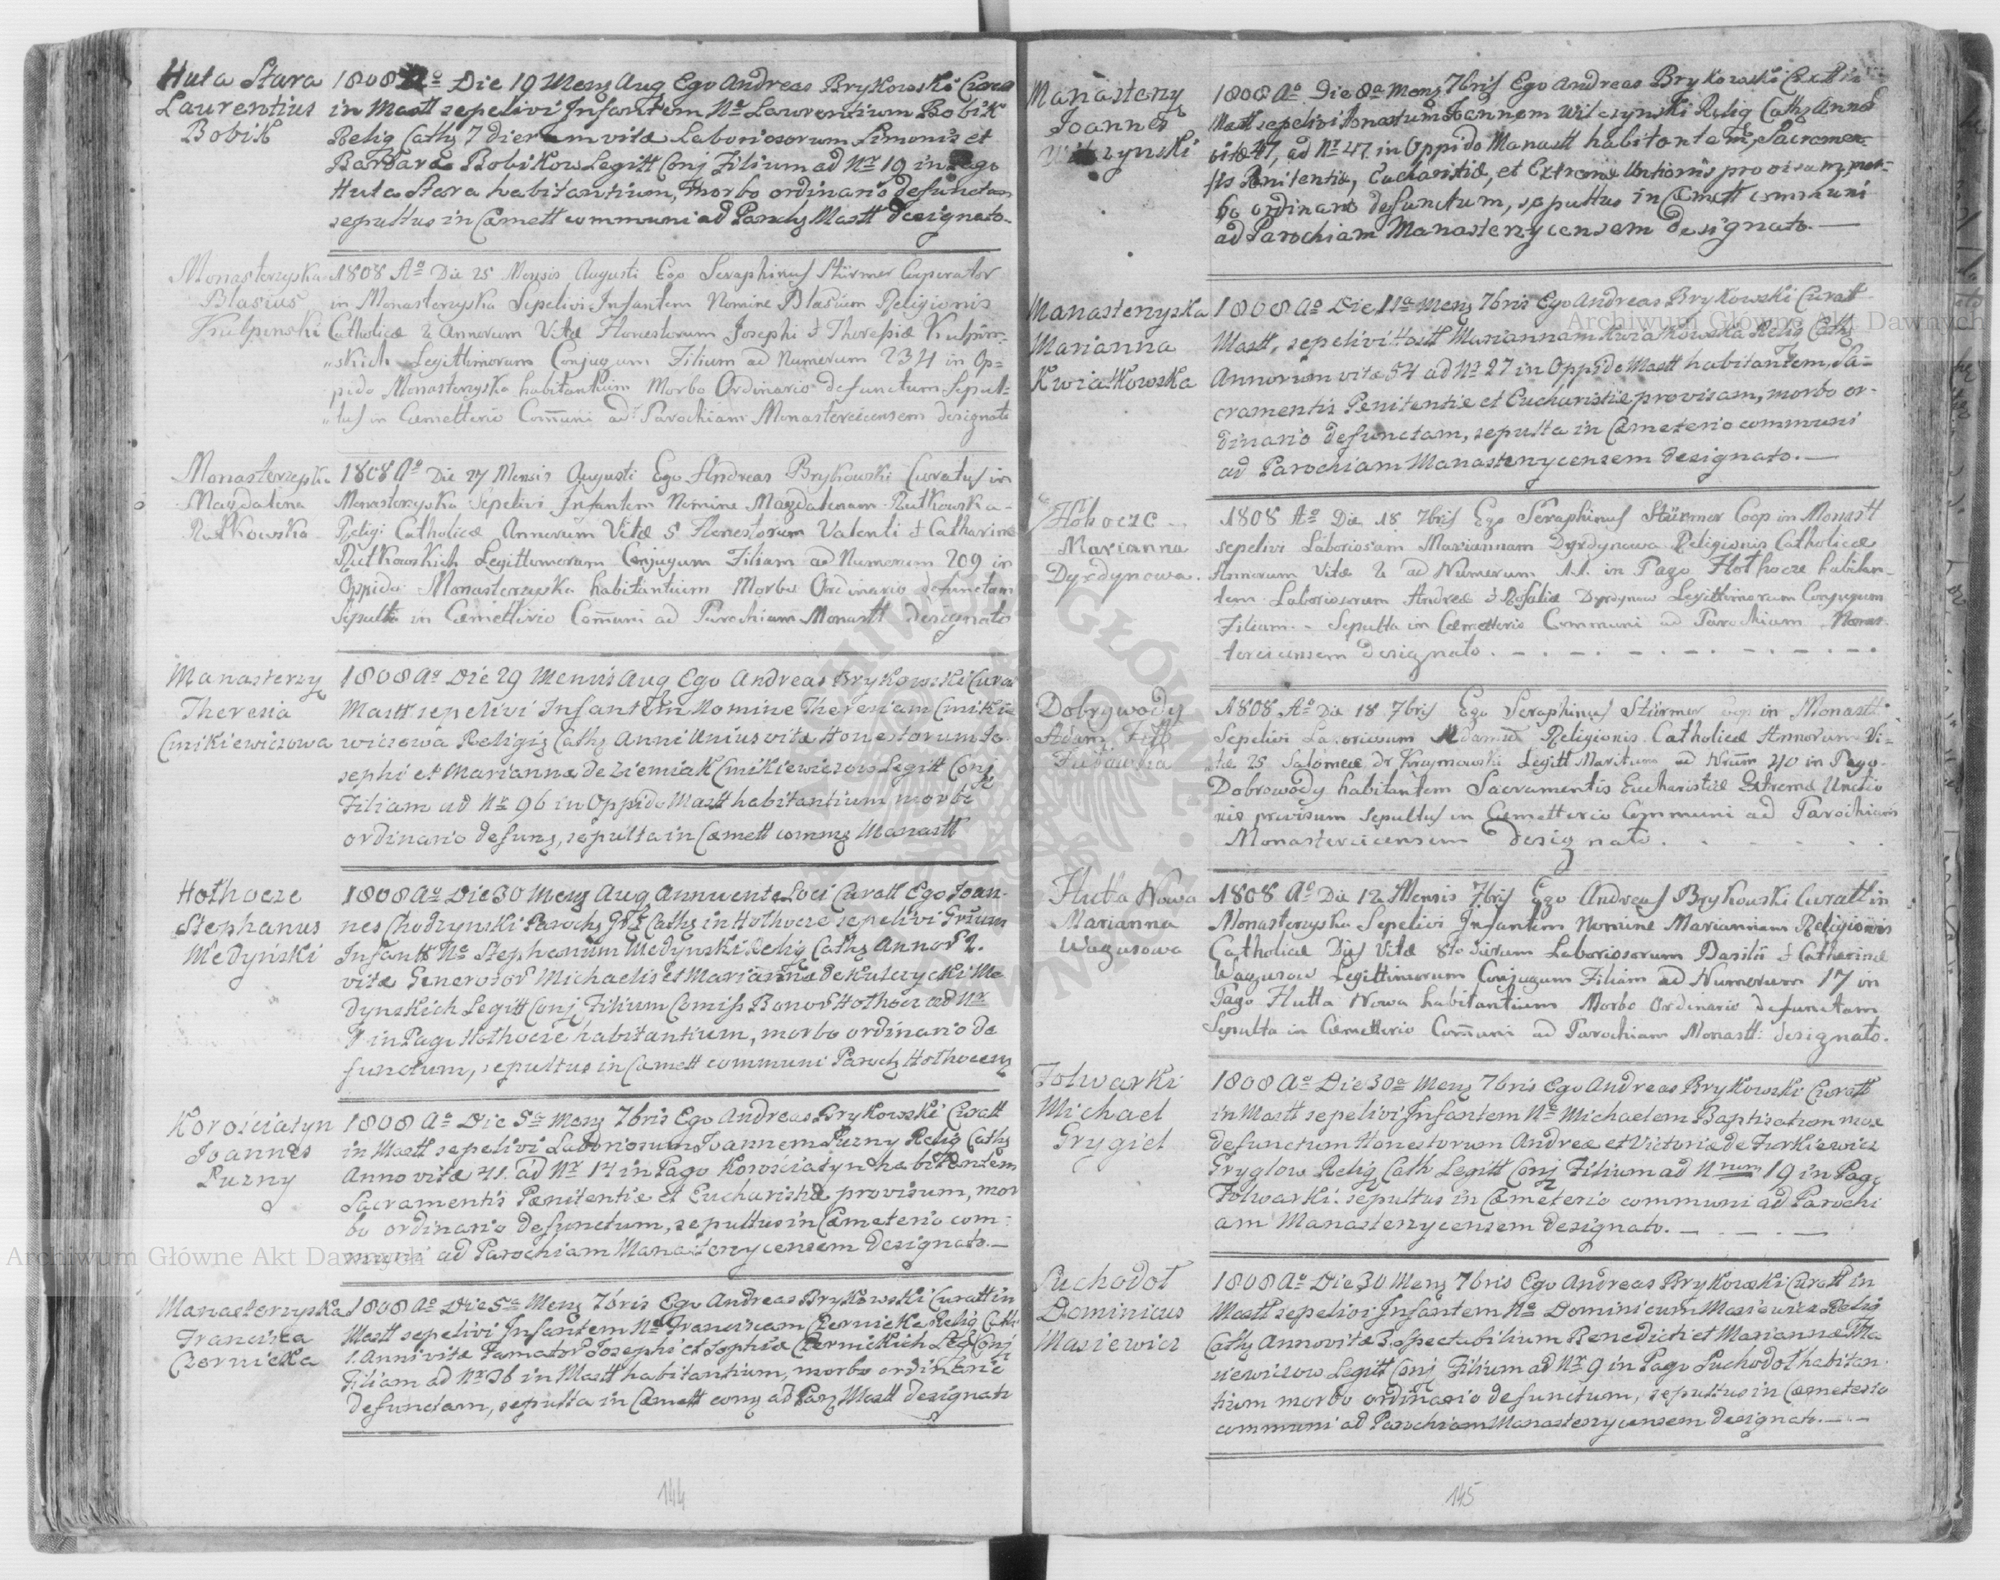 Huta Stara
Laurentius
Bobik
1808 Aº Die 19 Mens Aug Ego Andreas Brykowski Curat
in Mastt sepelivi Infantem Nº Laurentium Bobik
Relig Cath 7 dierum vitæ Laboriosorum Simonis et
Barbaræ Bobikow Legitt Conj Filium ad Nr 19 in Pago
Huta Stara habitantium, morbo ordinario defunctum
sepultus in Cæmett communi ad Paroch Mastt designato
Monasterzyska
Blasius
Kulpinski
1808 Aº Die 25 Mensis Augusti Ego Seraphinus Stürmer Cooperator
in Monasterzyska Sepelivi Infantem Nomine Blasium Religionis
Catholicæ 2 Annorum Vitæ Honestorum Josephi & Theresiæ Kulpin-
skich Legittimorum Conjugum Filium ad Numerum 234 in Op=
pido Monasterzyska habitantium Morbo Ordinario defunctum Sepul-
tus in Cæmetterio Com̄uni ad Parochiam Monastercicensem designato
Monasterzyska
Magdalena
Rutkowska
1808 Aº Die 27 Mensis Augusti Ego Andreas Brykowski Curatus in
Monasterzyska Sepelivi Infantem Nomine Magdalenam Rutkowska
Religi Catholicæ Annorum Vitæ 5 Honestorum Valenti & Catharinæ
Rutkowskich Legittimorum Conjugum Filiam ad Numerum 209 in
Oppido Monasterzyska habitantium Morbo Ordinario defunctam
Sepulta in Cæmetterio Com̄uni ad Parochiam Monastt designato
Manasterzy
Theresia
Cmikiewiczowa
1808 Aº Die 29 Mensis Aug Ego Andreas Brykowski Curat
Mastt sepelivi Infantem Nomine Theresiam Cmikie
wiczowa Religis Cath Anni Unius vitæ Honestorum Jo
sephi et Mariannæ de Ziemiak Cmikiewiczow Legitt Conj
Filiam ad Nr 96 in Oppido Mastt habitantium morbo
ordinario defunc, sepulta in Cæmett comm Manastt
Hothocze
Stephanus
Medyński
1808 Aº Die 30 Mens Aug Annuente Loci Curatt Ego Joan-
nes Chodzynski Paroch Gr Cath in Hothocze sepelivi
Infantt Nº Stephanum Medynski Relig Cath Annor 2.
vitæ Generosor Michaelis et Mariannæ de Kulczycki Me
dynskich Legitt Conj Filium Comiss Bonor Hothocz ad Nr
1 in Pago Hothocze habitantium, morbo ordinario de
functum, sepultus in Cæmett communi Paroch Hothocens
Korościatyn
Joannes
Luzny
1808 Aº Die 5ta Mens 7bris Ego Andreas Brykowski Curatt
in Mastt sepelivi Laboriosum Joannem Luzny Relig Cath
Anno vitæ 41. ad Nr 14 in Pago Korościatyn habitantem
Sacramentis Pænitentiæ et Eucharistiæ provisum, mor
bo ordinario defunctum, sepultus in Cæmeterio com-
muni ad Parochiam Manasterzycensem designato.—
Manasterzyska
Francisca
Czernicka
1808 Aº Die 5ta Mens 7bris Ego Andreas Brykowski Curatt in
Mastt sepelivi Infantem Nº Franciscam Czernicka Relig Cath
1. Anni vitæ Famator Josephi et Sophiæ Czernickich Leg Conj
Filiam ad Nr 36 in Mastt habitantium, morbo ordinario
defunctam, sepulta in Cæmett com ad Par Mastt designato
144
Manasterzy
Joannes
Wilczynski
1808 Aº Die 8a Mens 7bris Ego Andreas Brykowski Curatt in
Mastt sepelivi Honestum Joannem Wilczynski Relig Cath Annor
vitæ 47, ad Nr 47 in Oppido Manastt habitantem, Sacramen-
tis Penitentiæ, Eucharistiæ, et Extremæ Unctionis provisum, mor-
bo ordinario defunctum, sepultus in Cæmett communi
ad Parochiam Manasterzycensem designato.—
Manasterzyska
Marianna
Kwiatkowska
1808 Aº Die 11a Mens 7bris Ego Andreas Brykowski Curat
Mastt, sepelivi Hostt Mariannam Kwiatkowska Relig Cath
Annorum vitæ 54 ad Nr 27 in Oppido Mastt habitantem, Sa=
cramentis Penitentiæ et Eucharistiæ provisam, morbo or-
dinario defunctam, sepulta in Cæmeterio communi
ad Parochiam Manasterzycensem designato.—
Hohocze
Marianna
Dyrdynowa.
1808 Aº Die 18 7bris Ego Seraphinus Stürmer Coop in Monastt
sepelivi Laboriosam Mariannam Dyrdynowa Religionis Catholicæ
Annorum Vitæ 2 ad Numerum 11. in Pago Hothocze habitan-
tem Laboriosorum Andreæ & Rosaliæ Dyrdynow Legittimorum Conjugum
Filiam. Sepulta in Cæmetterio Communi ad Parochiam Monas-
tercicensem designato.
Dobrywody
Adam
1808 Aº Die 18 7bris Ego Seraphinus Stürmer Coop in Monastt
Sepelivi Laboriosum Adamum Religionis Catholicæ Annorum Vi=
tæ 25 Salomeæ de Krzymowski Legitt Maritum ad Nrum 40 in Pago
Dobrowody habitantem Sacramentis Eucharistiæ Extremæ Unctio
nis provisum Sepultus in Cæmetterio Communi ad Parochiam
Monastercicensem designato.
Hutta Nowa
Marianna
Wagusowa
1808 Aº Die 12 Mensis 7bris Ego Andreas Brykowski Curatt in
Monasterzyska Sepelivi Infantem Nomine Mariannam Religionis
Catholicæ Dies Vitæ 8to dierum Laboriosorum Basilii & Catherinæ
Wagusow Legittimorum Conjugum Filiam ad Numerum 17 in
Pago Hutta Nowa habitantium Morbo Ordinario defunctam
Sepulta in Cæmetterio Com̄uni ad Parochiam Monastt: designato.
Folwarki
Michael
Grygiel
1808 Aº Die 30a Mens 7bris Ego Andreas Brykowski Curatt
in Mastt sepelivi Infantem Nº Michaelem Baptisatum mox
defunctum Honestorum Andreæ et Victoriæ de Turkiewicz
Gryglow Relig Cath Legitt Conj Filium ad Nrum 19 in Pago
Folwarki. sepultus in Cæmeterio communi ad Parochi
am Manasterzycensem designato.—
Luchodoł
Dominicus
Masiewicz
1808 Aº Die 30 Mens 7bris Ego Andreas Brykowski Curatt in
Mastt sepelivi Infantem Nº Dominicum Masiewicz Relig
Cath Anno vitæ 3. Spectabilium Benedicti et Mariannæ Ma
siewiczow Legitt Conj Filium ad Nr 9 in Pago Luchodoł habitan-
tium morbo ordinario defunctum, sepultus in Cæmeterio
communi ad Parochiam Manasterzycensem designato.—
145
Archiwum Główne Akt Dawnych
Archiwum Główne Akt Dawnych